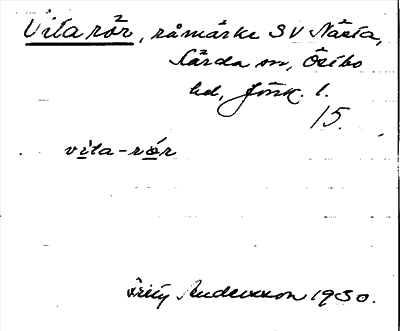 Vita rör, råmärke SV Nästa,
Kärda sn, Östbo
hd, Jönk. l.
15.
vita-rör
Andersson 1930.